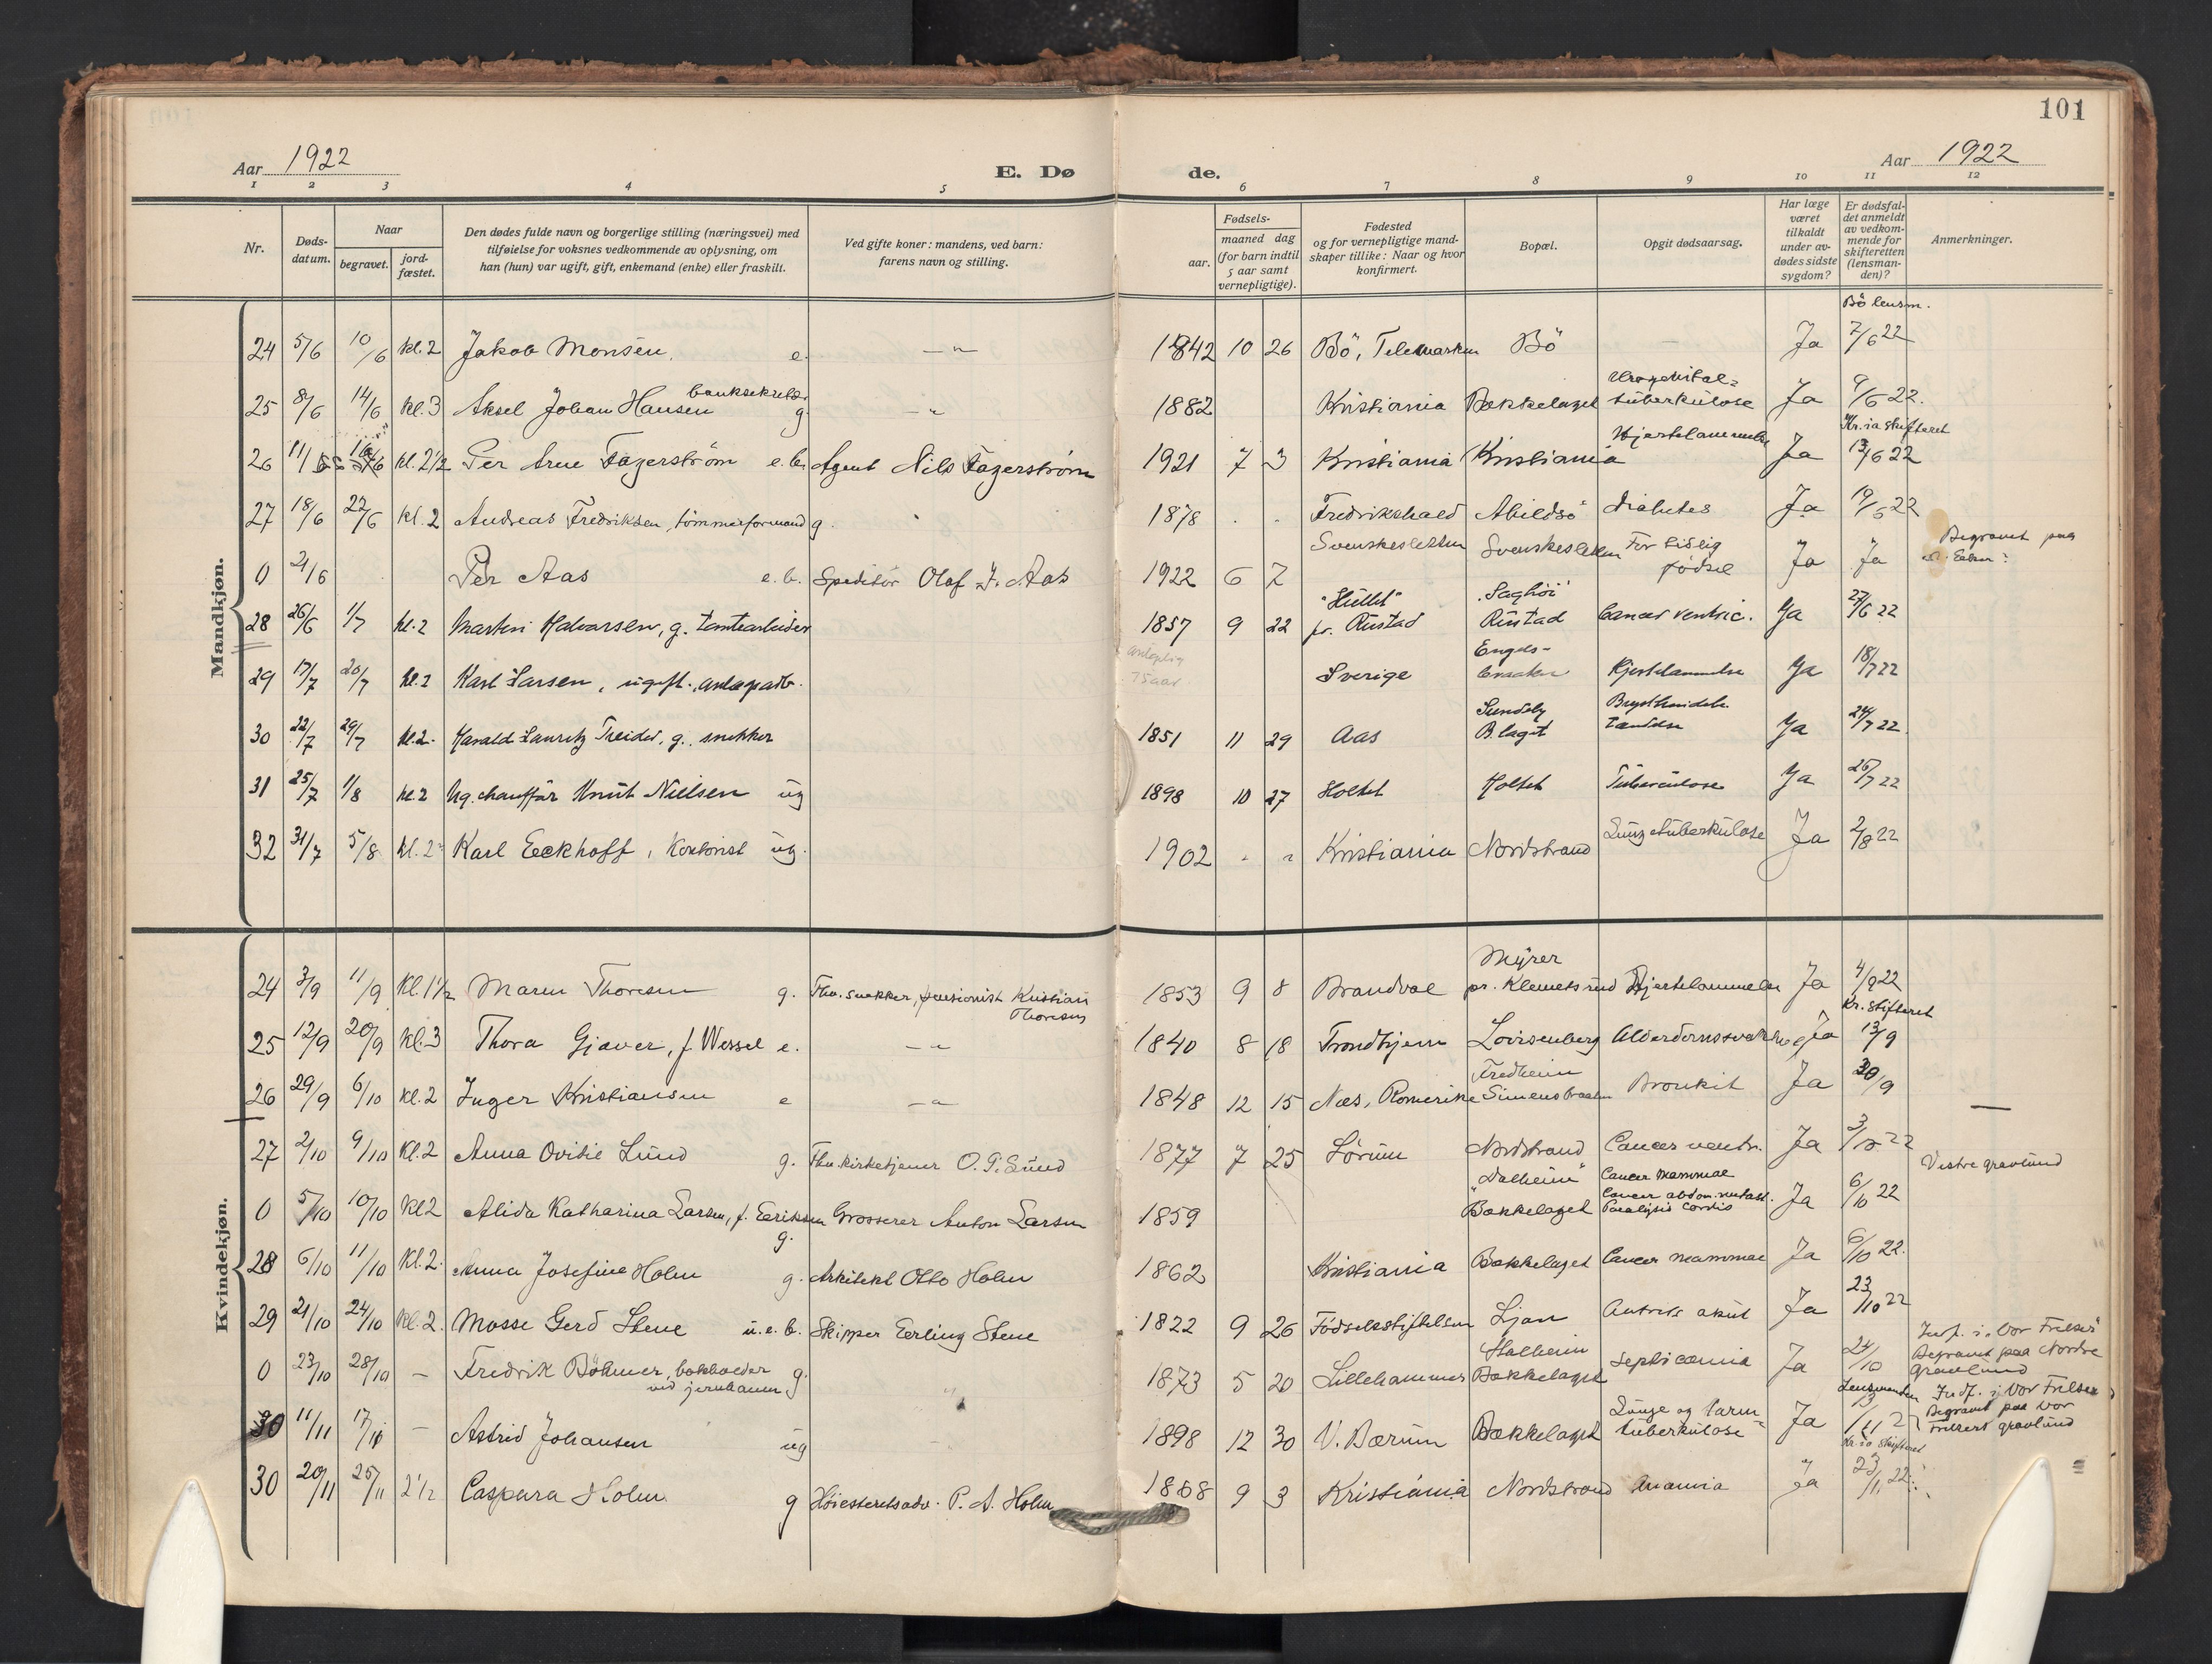 101
Aar 1922 E. Dø de. Aar 1922
1 2 3 4 5 6 7 8 9 10 11 12
Nr.
Døds-
datum.
Naar
begravet.
jord-
fæstet.
Den dødes fulde navn og borgerlige stilling (næringsvei) med
tilføielse for voksnes vedkommende av oplysning, om
han (hun) var ugift, gift, enkemand (enke) eller fraskilt.
Ved gifte koner: mandens, ved barn:
farens navn og stilling.
Fødsels-
aar.
maaned dag
(for barn indtil
5 aar samt
vernepligtige).
Fødested
og for vernepligtige mand-
skaper tillike: Naar og hvor
konfirmert.
Bopæl.
Opgit dødsaarsag.
Har læge
været
tilkaldt
under av-
dødes sidste
sygdom?
Er dødsfal-
det anmeldt
av vedkom-
mende for
skifteretten
(lensman-
den)?
Anmerkninger.
Mandkjøn.
Bö lensm.
24 5/6 10/6 kl. 2 Jakob Monsen. e. — " — 1842 10 26 Bö, Telemarken Bö — Ja 7/6 22
banksekretær
25 8/6 14/6 kl. 3 Aksel Johan Hansen g. — " — 1882 Kristiania Bækkelaget Urogenital- tuberkulose Ja 9/6 22.
Kr.ia skifteret
26 11/6 16/6 kl. 2 1/2 Per Arne Fagerström e. b. Agent Nils Fagerström 1921 7 3 Kristiania Kristiania Hjertelammelse Ja 13/6 22
27 18/6 22/6 kl. 2 Andreas Fredriksen, tömmerformand g. 1878 Fredrikshald Abildsö Diabetes Ja 19/6 22
0 21/6 Per Aas e. b. Speditör Olaf J. Aas 1922 6 7 Svenskesletten Svenskesletten For tidlig födsel Ja Ja Begravet paa
28 26/6 1/7 kl. 2 Martin Halvorsen, g. tomtearbeider 1857 9 22 "Hullet" pr. Rustad Saghöi Rustad Cancer ventric. Ja 27/6 22
29 17/7 20/7 kl. 2 Karl Larsen, ugift. anlægsarb. antagelig 75 aar Sverige Engelsbraaten Hjertelammelse Ja 18/7 22
30 22/7 29/7 kl. 2. Harald Lauritz Treider, g. snekker 1851 11 29 Aas Sundby B.laget Brysthindebetændelse Ja 24/7 22.
31 25/7 1/8 kl. 2 Ug. chaufför Knut Nielsen ug 1898 10 27 Holtet Holtet Tuberculose Ja 26/7 22
32 31/7 5/8 kl. 2 Karl Eeckhoff, Kontorist ug. 1902 Kristiania Nordstrand Lungetuberkulose Ja 2/8 22
Kvindekjøn.
24 3/9 11/9 Kl. 1 1/2 Maren Thoresen g. Fhv. snekker, pensionist Kristian Thoresen 1853 9 8 Brandval Myrer pr. Klemetsrud Hjertelammelse Ja 4/9 22
Kr. skifteret
25 12/9 20/9 Kl. 3 Thora Gjæver, f. Wessel e. — " — 1840 8 18 Trondhjem Lovisenberg Alderdomssvakhed Ja 13/9
26 29/9 6/10 Kl. 2 Inger Kristiansen e — " — 1848 12 15 Næs, Romerike Fredheim Simensbraaten Bronkit Ja 30/9
27 2/10 9/10 Kl. 2 Anna Ovidie Lund g. Fhv. kirketjener O. P. Lund 1877 7 25 Sörum Nordstrand Cancer ventr. Ja 3/10 22
0 5/10 10/10 Kl 2 Alida Katharina Larsen, f. Eeriksen g. Grosserer Anton Larsen 1859 "Dalheim" Bækkelaget Cancer mammae Cancer abdom. metast. Paralysis cordis Ja 6/10 22 Vestre gravlund
28 6/10 11/10 Kl. 2. Anna Josefine Holm g. Arkitekt Otto Holm 1862 Kristiania Bækkelaget Cancer mammae Ja 6/10 22.
29 21/10 24/10 Kl. 2. Mosse Gerd Stene u. e. b. Skipper Eerling Stene 1822 9 26 Födselsstiftelsen Ljan akut Ja 23/10 22
0 23/10 28/10 — Fredrik Böhmer, bokholder ved jernbanen g. 1873 5 20 Lillehammer Solheim Bækkelaget Septicæmia Ja 24/10 Indf. i "Vor Frelser" Begravet paa Nordre gravlund
Lensmanden
30 11/11 17/11 — Astrid Johansen ug 1898 12 30 V. Bærum Bækkelaget Lunge og tarm- tuberkulose Ja 13/11 2 Indf. i Vor Frelser Begravet paa Vor Frelsers gravlund
Kr.ia skifteret
30 20/11 25/11 2 1/2 Caspara Holm g Höiesteretsadv. P. A. Holm 1868 9 3 Kristiania Nordstrand Anæmia Ja 23/11 22.